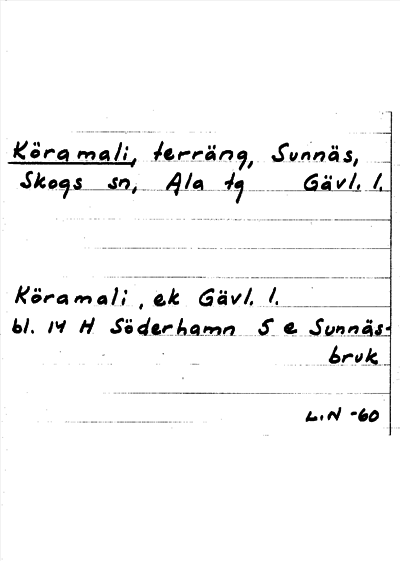 Köramali, terräng, Sunnäs,
Skogs sn, Ala tg Gävl. l.
Köramali, ek Gävl. l.
bl. 14 H Söderhamn 5 e Sunnäs-
bruk
L.N -60